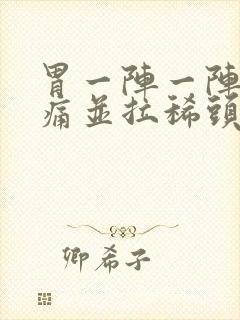 胃一陣一陣
痛並拉稀頭
卿希子